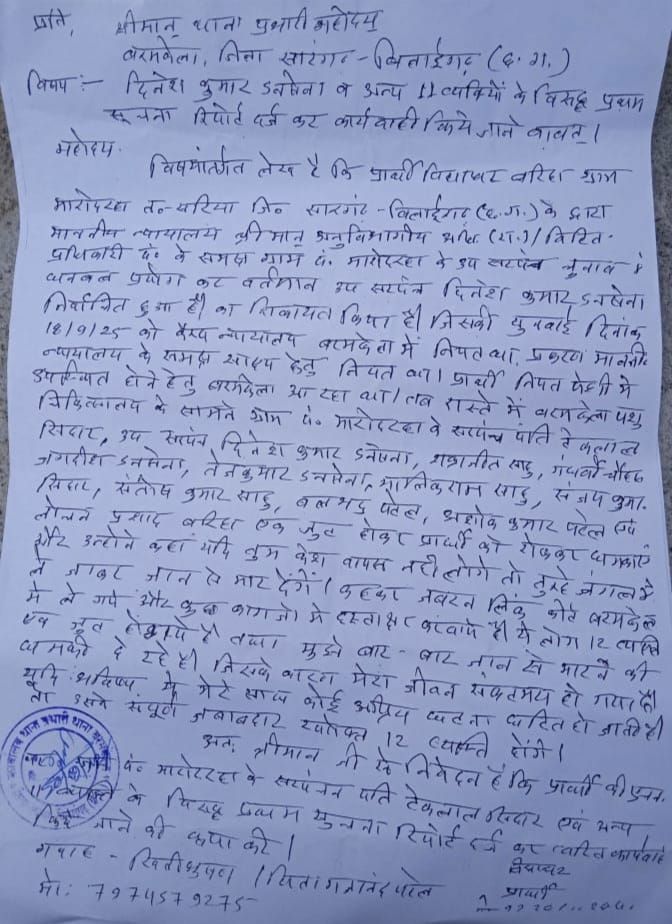 प्रति,
श्रीमान् थाना प्रभारी महोदय
बरमकेला, जिला सारंगढ़-बिलाईगढ़ (छ.ग.)
विषय:- दिनेश कुमार डनसेना व अन्य 11 व्यक्तियों के विरूद्ध प्रथम
सूचना रिपोर्ट दर्ज कर कार्यवाही किये जाने बाबत्।
महोदय,
विषयांतर्गत लेख है कि प्रार्थी विद्याधर बरिहा ग्राम
जि. सारंगढ़-बिलाईगढ़ (छ.ग.) के द्वारा
माननीय न्यायालय श्रीमान् अनुविभागीय अधि. (रा.)/विहित
प्राधिकारी पं. के समक्ष ग्राम पं. के उप सरपंच चुनाव में
धनबल प्रयोग कर वर्तमान उप सरपंच दिनेश कुमार डनसेना
निर्वाचित हुआ है। का शिकायत किया है। जिसकी सुनवाई दिनांक
18/9/25 को न्यायालय बरमकेला में नियत था, प्रकरण माननीय
न्यायालय के समक्ष साक्ष्य हेतु नियत था। प्रार्थी नियत पेशी में
उपस्थित होने हेतु बरमकेला आ रहा था। तब रास्ते में बरमकेला पशु
चिकित्सालय के सामने ग्राम पं. के सरपंच पति टेकलाल
सिदार, उप सरपंच दिनेश कुमार डनसेना, साहू,
जगदीश डनसेना, तेजकुमार डनसेना, मालिकराम साहू, संजय कुमार
सिदार, संतोष कुमार साहू, बलभद्र पटेल, अशोक कुमार पटेल एवं
लोचन प्रसाद बरिहा एक जुट होकर प्रार्थी को रोककर धमकाये
और उन्होंने कहा यदि तुम केश वापस नहीं लोगे तो तुम्हे जंगल में
ले जाकर जान से मार देंगे। कहकर जबरन लिंक कोर्ट बरमकेला
में ले गये और कुछ कागजो में हस्ताक्षर करवाये है। ये लोग 12 व्यक्ति
एक जुट होकर तथा मुझे बार-बार जान से मारने की
धमकी दे रहे है। जिसके कारण मेरा जीवन संकटमय हो गया है।
यदि भविष्य में मेरे साथ कोई अप्रिय घटना घटित हो जाती है।
तो उसके संपूर्ण जवाबदार उपरोक्त 12 व्यक्ति होंगे।
अतः श्रीमान जी से निवेदन है कि प्रार्थी की
पं. के सरपंच पति टेकलाल सिदार एवं अन्य
के विरूद्ध प्रथम सूचना रिपोर्ट दर्ज कर त्वरित कार्यवाही
किये जाने की कृपा करें।
गवाह -
विद्याधर
प्रार्थी
मो: 7974579275